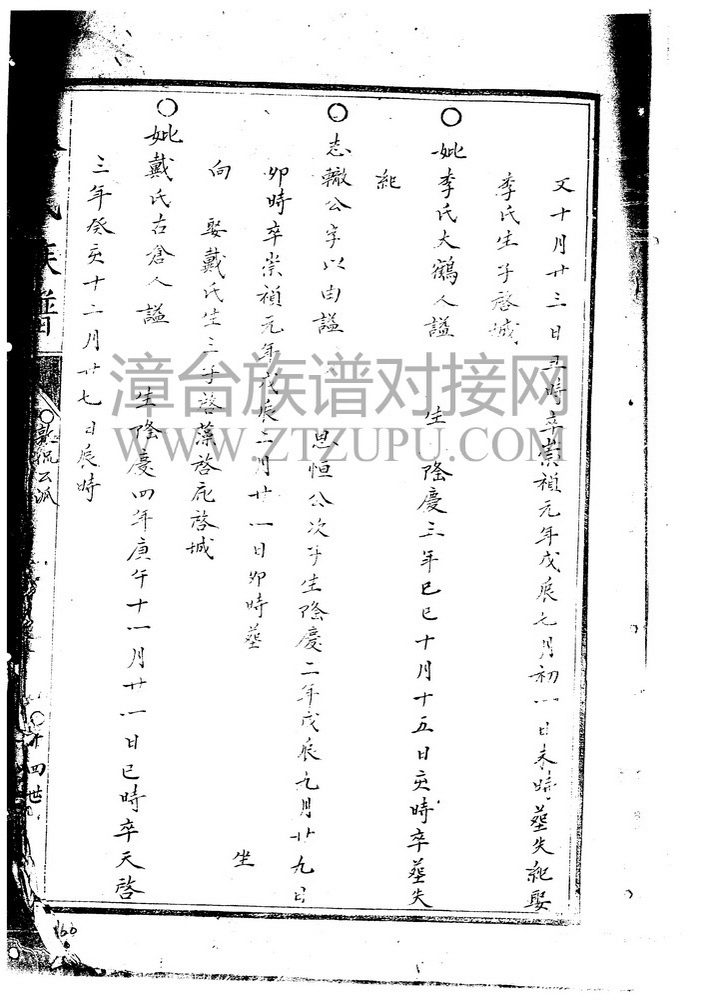 又十月廿三日丑時卒崇禎元年戊辰七月初一日未時葬失紀娶
李氏生子啓城
○妣李氏大鶴人謚 生隆慶三年己巳十月十五日亥時卒葬失
紀
○志轍公字以由謚 思恒公次子生隆慶二年戊辰九月廿九日
卯時卒崇禎元年戊辰三月廿一日卯時葬 坐
向 娶戴氏生三子啓藻啓庇啓城
○妣戴氏古倉人謚 生隆慶四年庚午十一月廿一日巳時卒天啓
三年癸亥十二月廿七日辰時
族譜
○敦侃公派
○十四世
166
漳台族谱对接网
WWW.ZTZUPU.COM